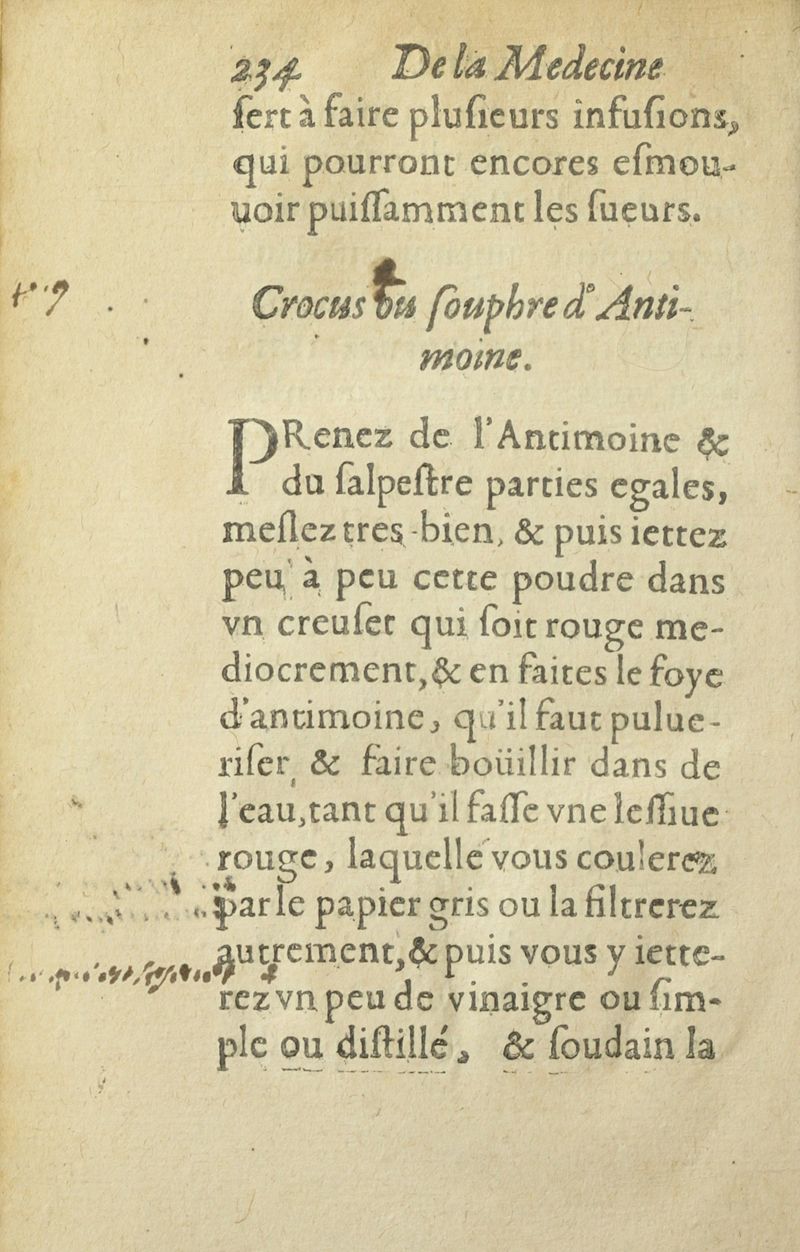 234 De la Medecine
ſert à faire pluſieurs infuſions,
qui pourront encores eſmou-
uoir puiſſamment les ſueurs.
Crocus ou ſouphre d'Anti-
moine.
PRenez de l'Antimoine &
du ſalpeſtre parties egales,
meſlez tres-bien, & puis iettez
peu à peu cette poudre dans
vn creuſet qui ſoit rouge me-
diocrement, & en faites le foye
d'antimoine, qu'il faut pulue-
riſer & faire boüillir dans de
l'eau, tant qu'il faſſe vne leſſiue
rouge, laquelle vous coulerez
par le papier gris ou la filtrerez
autrement, & puis vous y iette-
rez vn peu de vinaigre ou ſim-
ple ou diſtillé, & ſoudain la